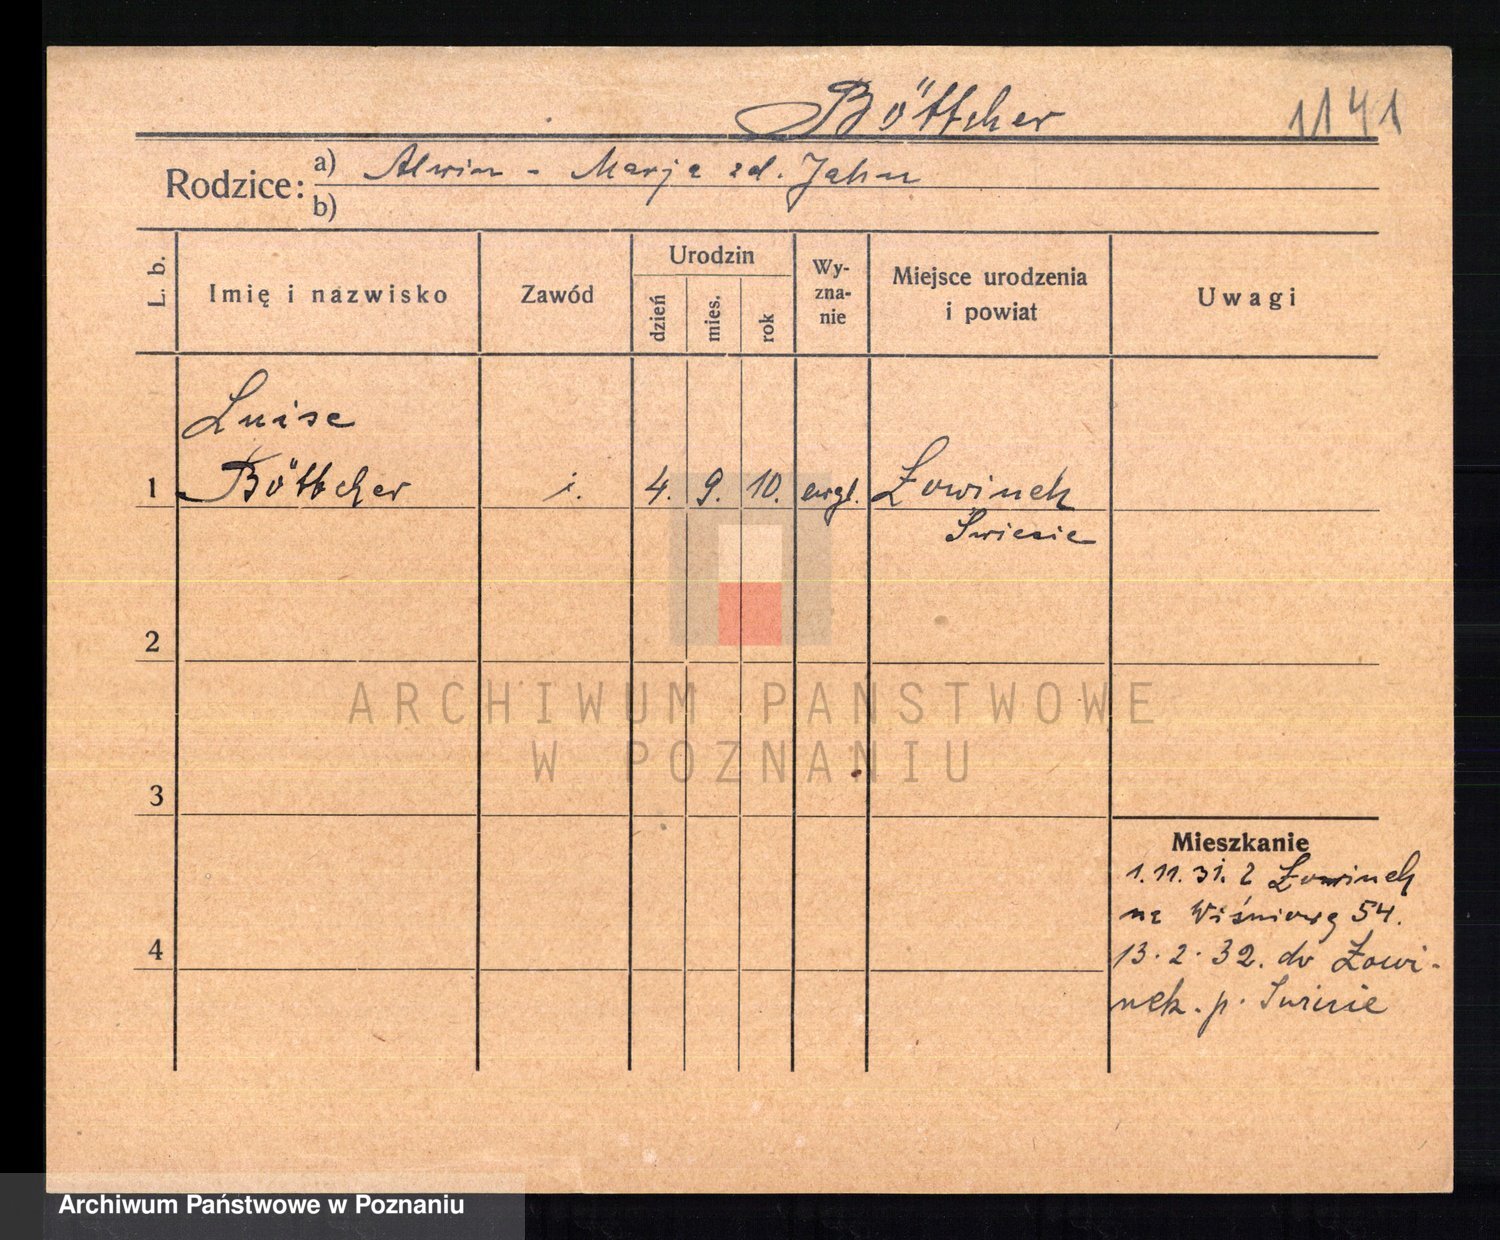 Böttcher 1141
Rodzice: a) Alwin - Marja zd. Jahn
b)
L. b. Imię i nazwisko Zawód Urodzin dzień mies. rok Wy-zna-nie Miejsce urodzenia i powiat Uwagi
Luise
1 Böttcher i. 4. 9. 10. ewgl. Łowinek
Świecie
2
ARCHIWUM PAŃSTWOWE
W POZNANIU
3
Mieszkanie
1.11.31. z Łowinek
na Wiśniową 54.
4 13.2.32. do Łowi-
nek. p. Świecie
Archiwum Państwowe w Poznaniu